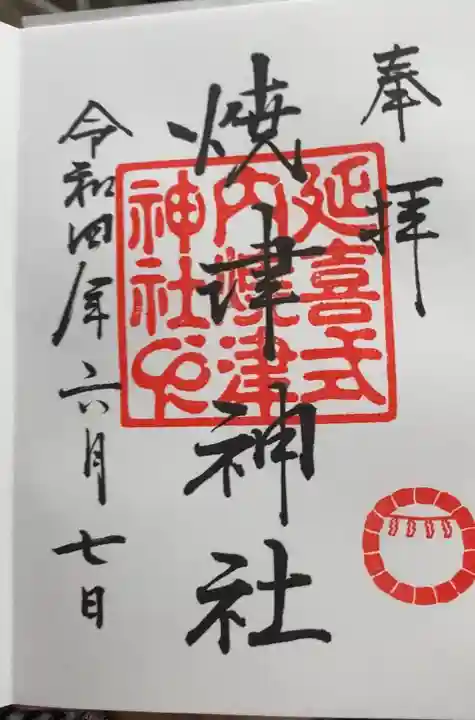 奉拝
焼津神社
延喜式
内焼津
神社印
令和四年六月七日